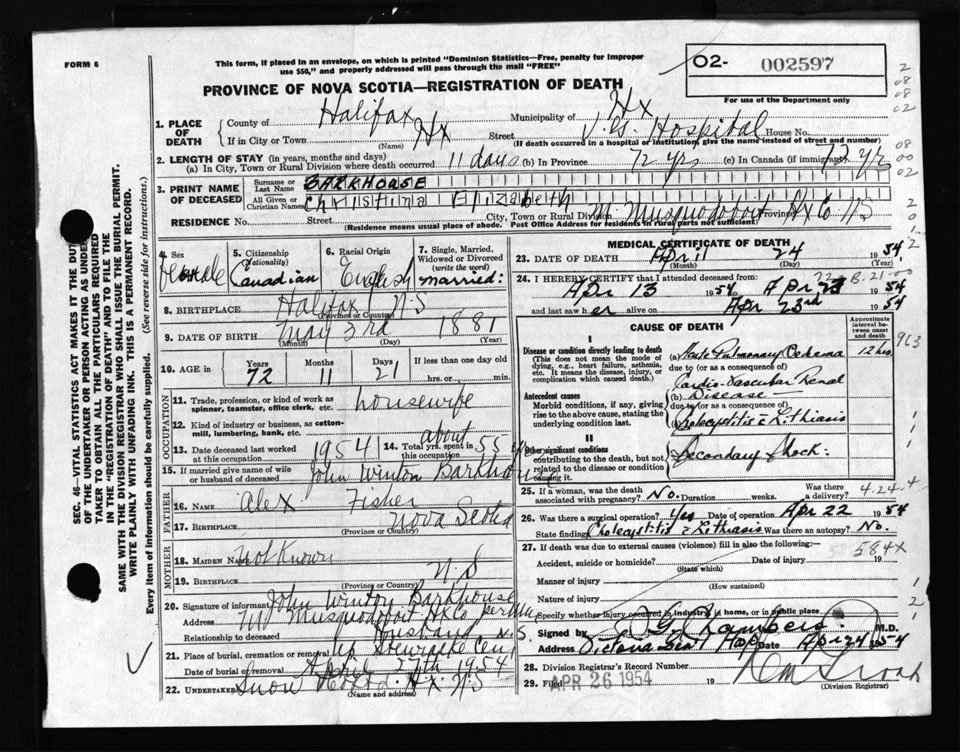 FORM 6
This form, if placed in an envelope, on which is printed "Dominion Statistics—Free, penalty for improper
use $50," and properly addressed will pass through the mail "FREE"
O2- 002597
For use of the Department only
PROVINCE OF NOVA SCOTIA—REGISTRATION OF DEATH
1. PLACE OF DEATH
County of Halifax Municipality of Hx
If in City or Town Hx (Name) Street V.G. Hospital House No.
(If death occurred in a hospital or institution, give the name instead of street and number)
2. LENGTH OF STAY (in years, months and days)
(a) In City, Town or Rural Division where death occurred 11 days (b) In Province 72 yrs (c) In Canada (if immigrant) 72 yrs
3. PRINT NAME OF DECEASED
Surname or Last Name BARKHOUSE
All Given or Christian Names Christina Elizabeth
RESIDENCE No. Street City, Town or Rural Division M. Musquodoboit Province Hx Co NS
(Residence means usual place of abode. Post Office Address for residents in rural parts not sufficient)
4. Sex female
5. Citizenship (Nationality) Canadian
6. Racial Origin English
7. Single, Married, Widowed or Divorced (write the word) married:
8. BIRTHPLACE Halifax N.S
(Province or Country)
9. DATE OF BIRTH May 3rd 1881
(Month) (Day) (Year)
10. AGE in Years 72 Months 11 Days 21 If less than one day old hrs. or min.
OCCUPATION
11. Trade, profession, or kind of work as spinner, teamster, office clerk, etc. housewife
12. Kind of industry or business, as cotton-mill, lumbering, bank, etc.
13. Date deceased last worked at this occupation 1954
14. Total yrs. spent in this occupation about 55
15. If married give name of wife or husband of deceased John Winton Barkhouse
FATHER
16. Name Alex Fisher
17. Birthplace Nova Scotia
(Province or Country)
MOTHER
18. Maiden Name Not Known
19. Birthplace N.S
(Province or Country)
20. Signature of informant John Winton Barkhouse
Address M Musquodoboit Hx Co
Relationship to deceased husband N.S.
21. Place of burial, cremation or removal Up Stewiacke Cem
Date of burial or removal April 27th 1954
22. Undertaker Snow Hx. N.S
(Name and address)
MEDICAL CERTIFICATE OF DEATH
23. DATE OF DEATH April 24 1954
(Month) (Day) (Year)
24. I HEREBY CERTIFY that I attended deceased from:
Apr 13 1954 Apr 23 1954
and last saw her alive on Apr 23rd 1954
CAUSE OF DEATH
Approximate interval between onset and death
I
Disease or condition directly leading to death
(This does not mean the mode of dying, e.g., heart failure, asthenia, etc. It means the disease, injury, or complication which caused death.)
(a) Acute Pulmonary Oedema 12 hrs.
due to (or as a consequence of)
Antecedent causes
Morbid conditions, if any, giving rise to the above cause, stating the underlying condition last.
(b) Cardio-Vascular Renal Disease
due to (or as a consequence of)
Cholecystitis c Lithiasis
II
Other significant conditions
contributing to the death, but not related to the disease or condition causing it.
Secondary Shock:
963
25. If a woman, was the death associated with pregnancy? No. Duration weeks. Was there a delivery?
4-24
26. Was there a surgical operation? Yes Date of operation Apr 22 1954
State findings Cholecystitis c Lithiasis Was there an autopsy? No.
27. If death was due to external causes (violence) fill in also the following:—
584X
Accident, suicide or homicide? Date of injury 19
(State which)
Manner of injury
(How sustained)
Nature of injury
Specify whether injury occurred in industry, in home, or in public place
Signed by M.D.
Address Victoria Gen Hosp Date Apr 24 1954
28. Division Registrar's Record Number
29. Filed APR 26 1954 19
(Division Registrar)
SEC. 46—VITAL STATISTICS ACT MAKES IT THE DUTY
OF THE UNDERTAKER OR PERSON ACTING AS UNDER-
TAKER TO OBTAIN ALL THE PARTICULARS REQUIRED
IN THE "REGISTRATION OF DEATH" AND TO FILE THE
SAME WITH THE DIVISION REGISTRAR WHO SHALL ISSUE THE BURIAL PERMIT.
WRITE PLAINLY WITH UNFADING INK. THIS IS A PERMANENT RECORD.
Every item of information should be carefully supplied. (See reverse side for instructions.)